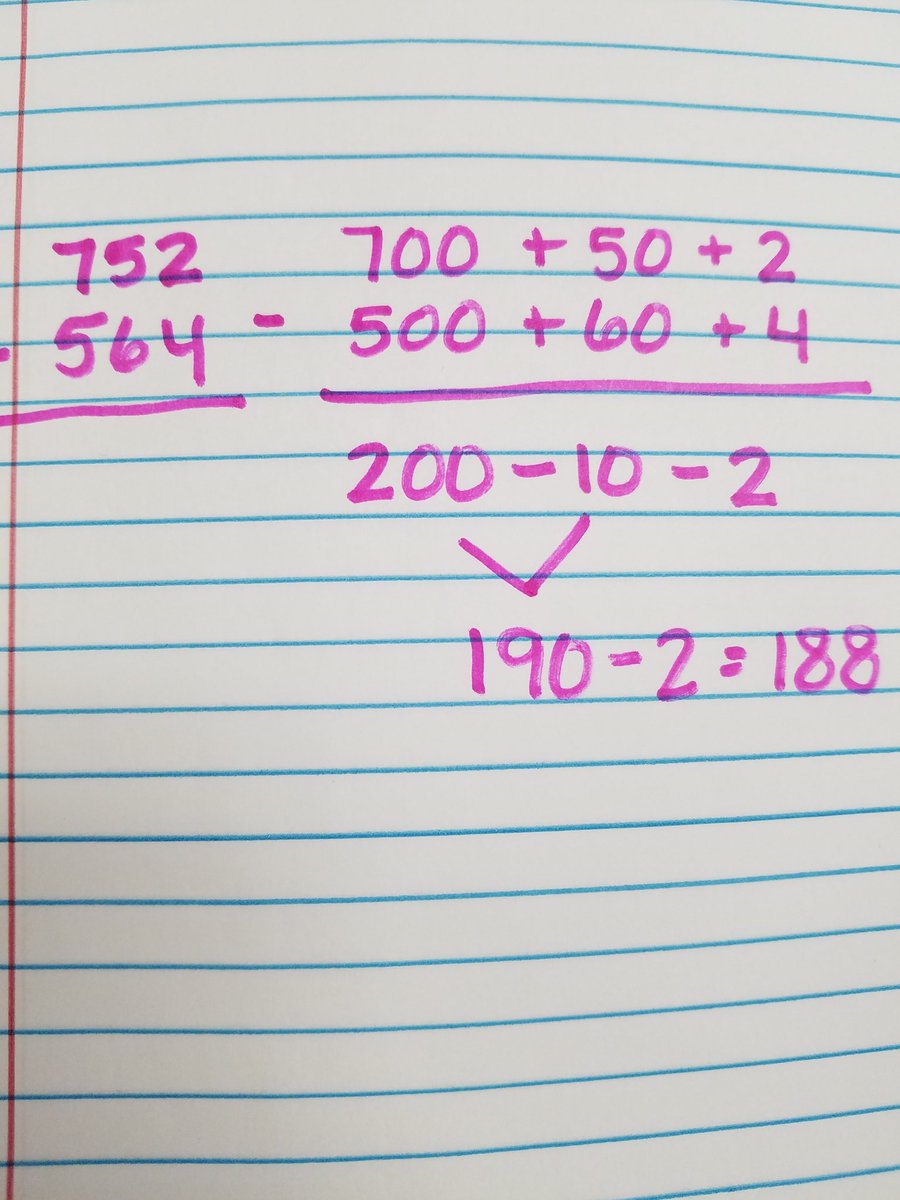 752 700 + 50 + 2
- 564 - 500 + 60 + 4
200 - 10 - 2
190 - 2 = 188